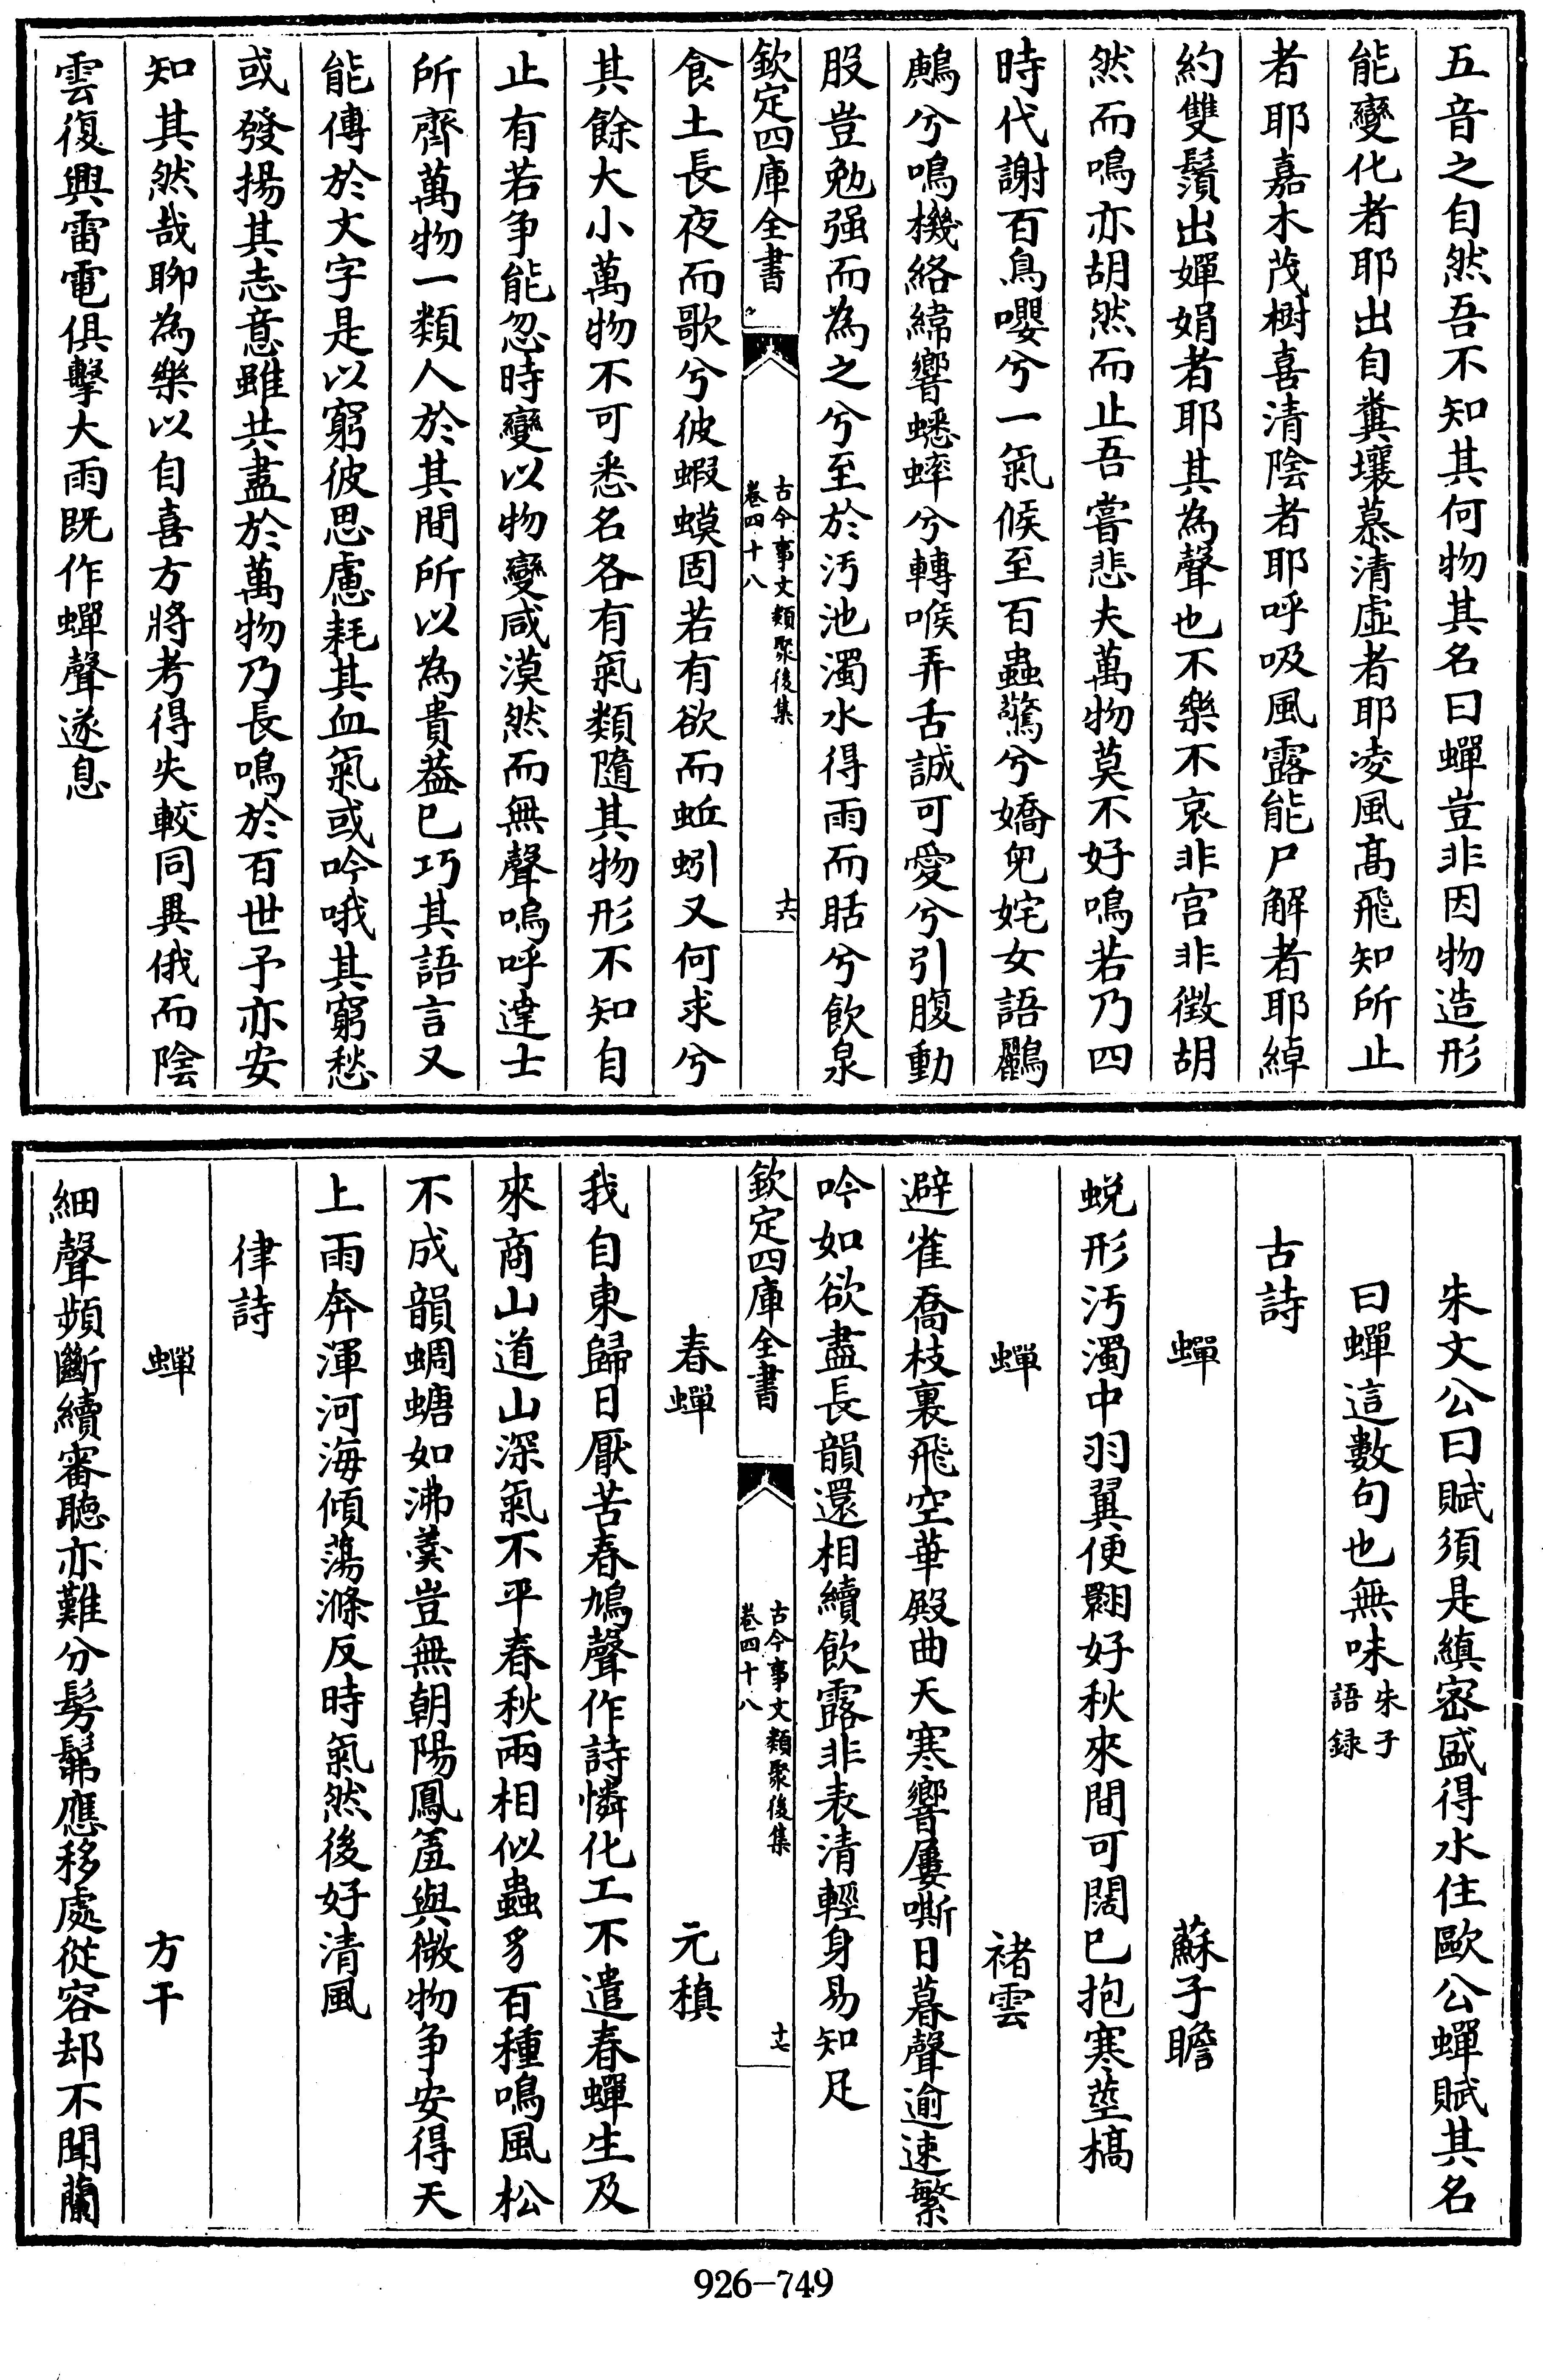 五音之自然吾不知其何物其名曰蟬豈非因物造形
能變化者耶出自糞壤慕清虛者耶凌風髙飛知所止
者耶嘉木茂樹喜清陰者耶呼吸風露能尸解者耶綽
約雙鬢出嬋娟者耶其為聲也不樂不哀非宫非徴胡
然而鳴亦胡然而止吾嘗悲夫萬物莫不好鳴若乃四
時代謝百鳥嚶兮一氣候至百蟲驚兮嬌兒姹女語鸝
鷓兮鳴機絡緯響蟋蟀兮轉喉弄舌誠可愛兮引腹動
股豈勉强而為之兮至於汚池濁水得雨而聒兮飲泉
欽定四庫全書
古今事文類聚後集
卷四十八
十六
食土長夜而歌兮彼蝦蟆固若有欲而蚯蚓又何求兮
其餘大小萬物不可悉名各有氣類隨其物形不知自
止有若争能忽時變以物變咸漠然而無聲嗚呼達士
所齊萬物一類人於其間所以為貴葢已巧其語言又
能傳於文字是以窮彼思慮耗其血氣或吟哦其窮愁
或發揚其志意雖共盡於萬物乃長鳴於百世予亦安
知其然哉聊為樂以自喜方將考得失較同異俄而陰
雲復興雷電俱擊大雨既作蟬聲遂息
朱文公曰賦須是縝密盛得水住歐公蟬賦其名
曰蟬這數句也無味朱子語録
古詩
蟬 蘇子瞻
蜕形汚濁中羽翼便翾好秋來間可闊已抱寒莖槁
蟬 褚雲
避雀喬枝裏飛空華殿曲天寒響屢嘶日暮聲逾速繁
吟如欲盡長韻還相續飲露非表清輕身易知足
欽定四庫全書
古今事文類聚後集
卷四十八
十七
春蟬 元稹
我自東歸日厭苦春鳩聲作詩憐化工不遣春蟬生及
來商山道山深氣不平春秋兩相似蟲豸百種鳴風松
不成韻蜩螗如沸羹豈無朝陽鳳羞與微物争安得天
上雨奔渾河海傾蕩滌反時氣然後好清風
律詩
蟬 方干
細聲頻斷續審聽亦難分髣髴應移處從容却不聞蘭
926-749